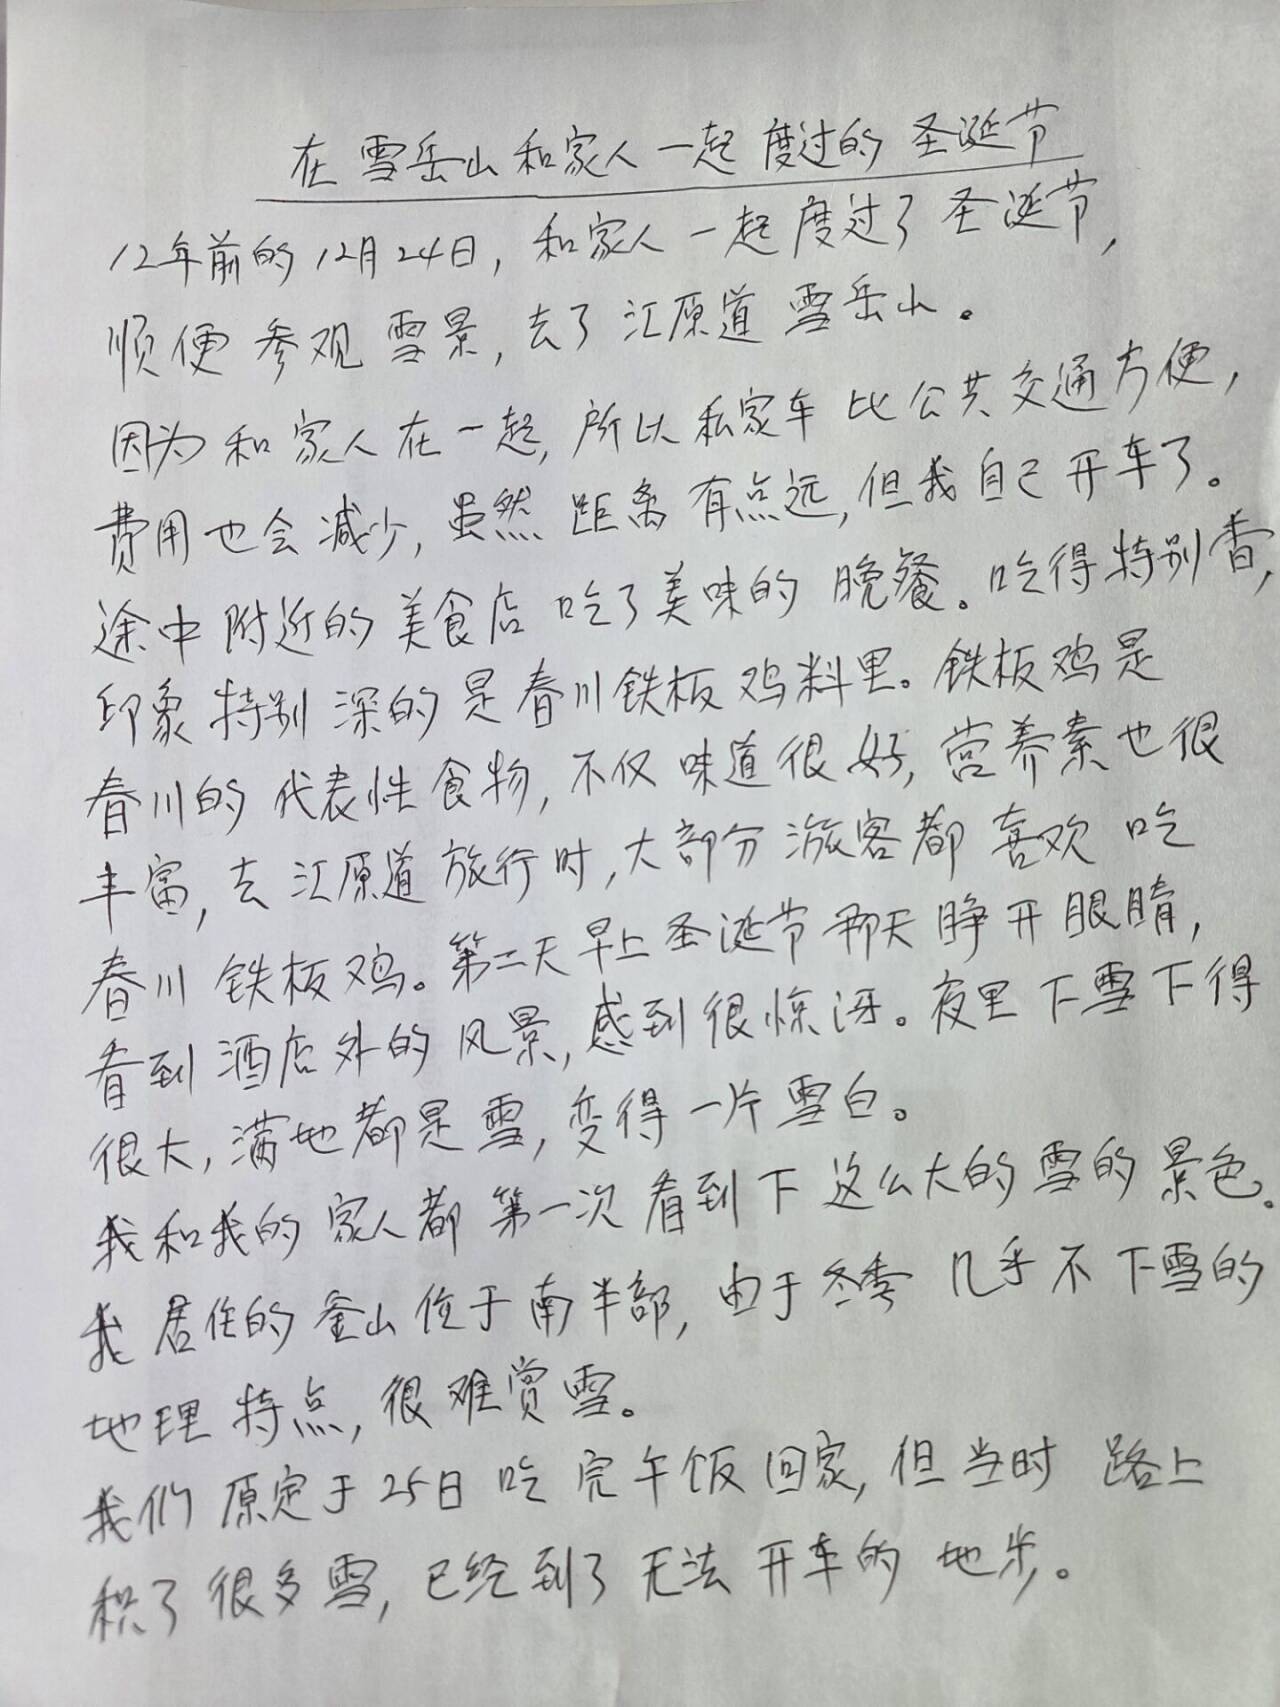 在雪岳山和家人一起度过的圣诞节
12年前的12月24日,和家人一起度过了圣诞节,
顺便参观雪景,去了江原道雪岳山。
因为和家人在一起,所以私家车比公共交通方便,
费用也会减少,虽然距离有点远,但我自己开车了。
途中附近的美食店吃了美味的晚餐。吃得特别香,
印象特别深的是春川铁板鸡料里。铁板鸡是
春川的代表性食物,不仅味道很好,营养素也很
丰富,去江原道旅行时,大部分游客都喜欢吃
春川铁板鸡。第二天早上圣诞节那天睁开眼睛,
看到酒店外的风景,感到很惊讶。夜里下雪下得
很大,满地都是雪,变得一片雪白。
我和我的家人都第一次看到下这么大的雪的景色。
我居住的釜山位于南半部,由于冬季几乎不下雪的
地理特点,很难赏雪。
我们原定于25日吃完午饭回家,但当时路上
积了很多雪,已经到了无法开车的地步。